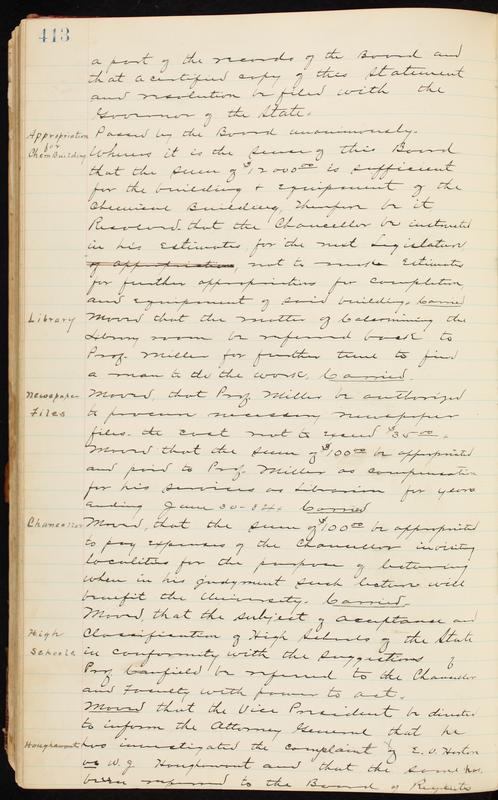 413
a part of the records of the Board and
that a certified copy of this Statement
and resolution be filed with the
Governor of the State.
Appropriation for Chem Building
Passed by the Board unanimously.
Whereas it is the sense of this Board
that the sum of $12000.00 is sufficient
for the building & Equipment of the
Chemical Building, Therefore be it
Resolved, that the Chancellor be instructed
in his Estimates for the next Legislature
of appropriation, not to make Estimates
for further appropriations for completion
and equipment of said building. Carried
Library
Moved that the matter of Calsomining the
Library room be referred back to
Prof. Miller for further time to find
a man to do the work. Carried.
Newspaper Files
Moved, that Prof. Miller be authorized
to procure necessary newspaper
files. the cost not to exceed $35.00.
Moved that the sum of $100.00 be appropriated
and paid to Prof. Miller as compensation
for his services as Librarian for year
ending June 30-84. Carried
Chancellor
Moved, that the sum of $100.00 be appropriated
to pay expenses of the Chancellor inviting
localities for the purpose of lecturing
when in his judgment such lecture will
benefit the University. Carried.
Moved, that the subject of acceptance and
High Schools
Classification of High Schools of the State
in conformity with the suggestions of
Prof. Canfield be referred to the Chancellor
and Faculty with power to act.
Moved that the Vice President be directed
to inform the Attorney General that he
Houghawout
has investigated the complaint by E. V. Horton
vs W. J. Houghawout and that the same has
been referred to the Board of Regents